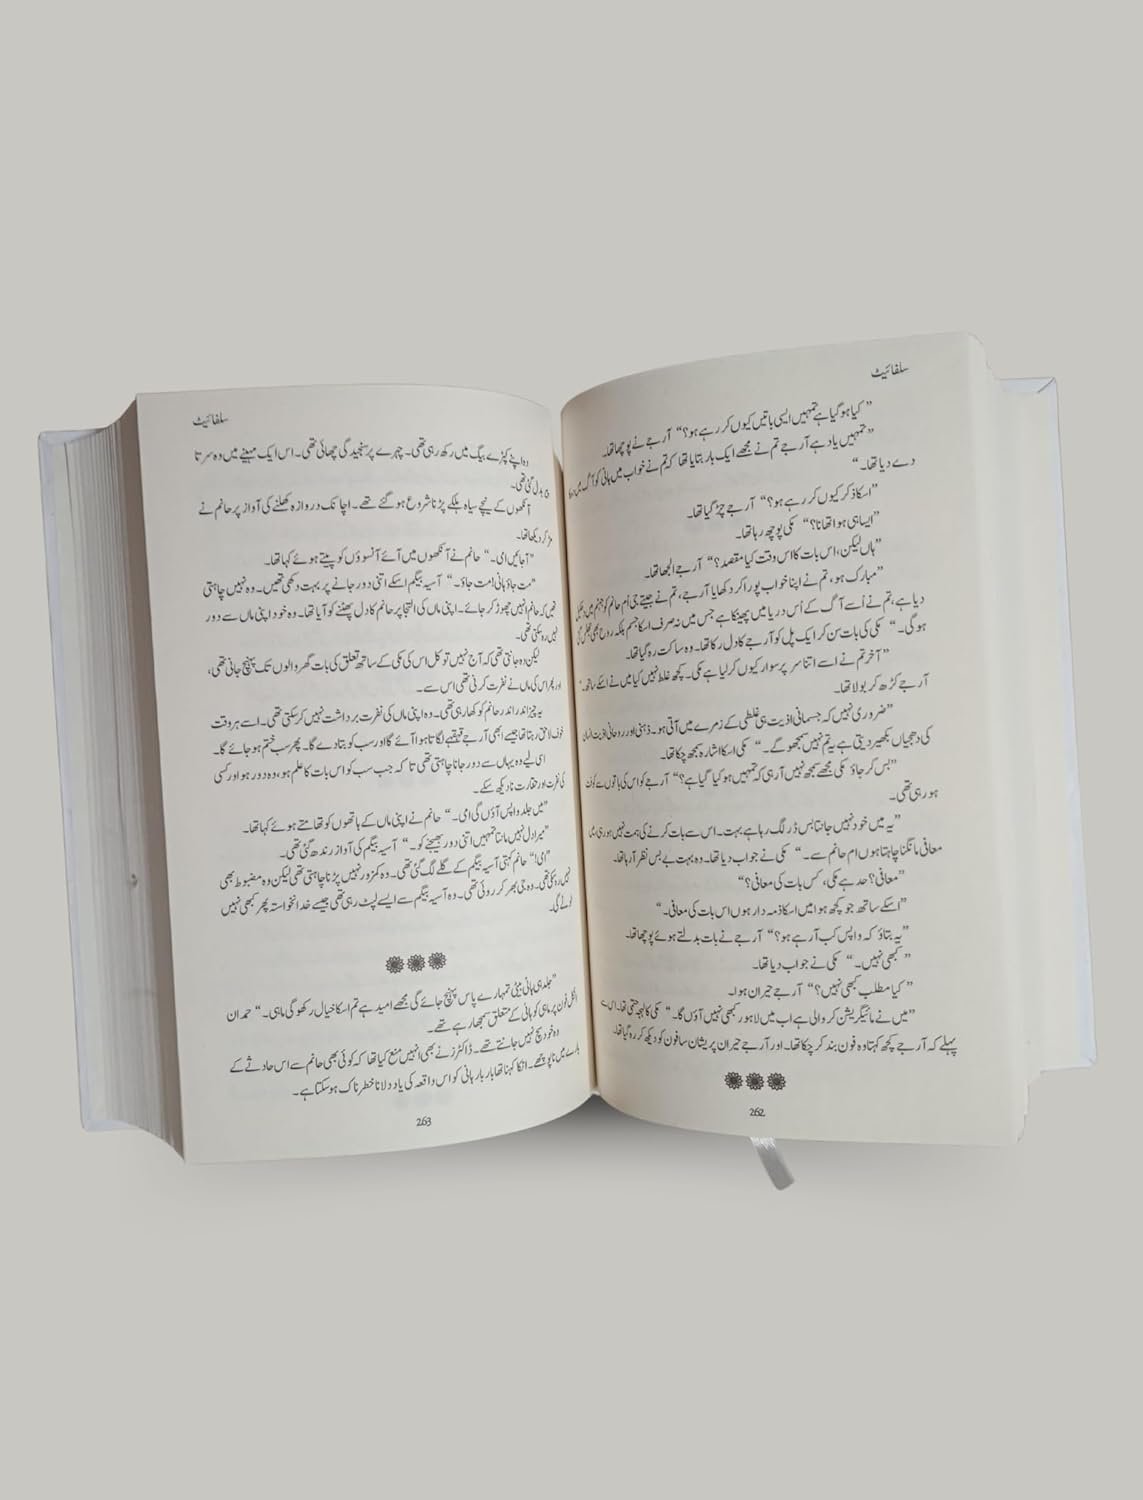 سلفائیٹ
”کیا ہو گیا ہے تمہیں ایسی باتیں کیوں کر رہے ہو؟“ آرجے نے پوچھا تھا۔
”تمہیں یاد ہے آرجے تم نے مجھے ایک بار بتایا تھا کہ تم نے خواب میں ہانی کو آگ میں
دے دیا تھا۔“
”اسکا ذکر کیوں کر رہے ہو؟“ آرجے چڑ گیا تھا۔
”ایسا ہی ہوا تھا نا؟“ مکی پوچھ رہا تھا۔
”ہاں لیکن، اس بات کا اس وقت کیا مقصد؟“ آرجے الجھا تھا۔
”مبارک ہو، تم نے اپنا خواب پورا کر دکھایا آرجے، تم نے جیتے جی اُم حانم کو جہنم میں
دیا ہے، تم نے اُسے آگ کے اُس دریا میں پھینکا ہے جس میں نہ صرف اسکا جسم بلکہ روح بھی جھلس گئی
ہوگی۔“ مکی کی بات سن کر ایک پل کو آرجے کا دل رکا تھا۔ وہ ساکت رہ گیا تھا۔
”آخر تم نے اسے اتنا سر پر سوار کیوں کر لیا ہے مکی۔ کچھ غلط نہیں کیا میں نے اسکے ساتھ۔“
آرجے کڑھ کر بولا تھا۔
”ضروری نہیں کہ جسمانی اذیت ہی غلطی کے زمرے میں آتی ہو۔ ذہنی اور روحانی اذیت انسان
کی دھجیاں بکھیر دیتی ہے یہ تم نہیں سمجھو گے۔“ مکی اسکا اشارہ سمجھ چکا تھا۔
”بس کر جاؤ مکی مجھے سمجھ نہیں آ رہی کہ تمہیں ہو کیا گیا ہے؟“ آرجے کو اس کی باتوں سے کوفت
ہو رہی تھی۔
”یہ میں خود نہیں جانتا بس ڈر لگ رہا ہے بہت۔ اس سے بات کرنے کی ہمت نہیں ہو رہی
معافی مانگنا چاہتا ہوں ام حانم سے۔“ مکی نے جواب دیا تھا۔ وہ بہت بے بس نظر آ رہا تھا۔
”معافی؟ حد ہے مکی، کس بات کی معافی؟“
”اسکے ساتھ جو کچھ ہوا میں اسکا ذمہ دار ہوں اس بات کی معافی۔“
”یہ بتاؤ کہ واپس کب آ رہے ہو؟“ آرجے نے بات بدلتے ہوئے پوچھا تھا۔
”کبھی نہیں۔“ مکی نے جواب دیا تھا۔
”کیا مطلب کبھی نہیں؟“ آرجے حیران ہوا۔
”میں نے مائیگریشن کر والی ہے اب میں لاہور کبھی نہیں آؤں گا۔“ مکی کا لہجہ حتمی تھا۔ اس سے
پہلے کہ آرجے کچھ کہتا وہ فون بند کر چکا تھا۔ اور آرجے حیران پریشان سا فون کو دیکھ کر رہ گیا تھا۔
262
سلفائیٹ
وہ اپنے کپڑے بیگ میں رکھ رہی تھی۔ چہرے پر سنجیدگی چھائی تھی۔ اس ایک مہینے میں وہ سر تا
بدل گئی تھی۔
آنکھوں کے نیچے سیاہ ہلکے پڑنا شروع ہو گئے تھے۔ اچانک دروازہ کھلنے کی آواز پر حانم نے
مڑ کر دیکھا تھا۔
”آجائیں امی۔“ حانم نے آنکھوں میں آئے آنسوؤں کو پیتے ہوئے کہا تھا۔
”مت جاؤ ہانی! مت جاؤ۔“ آسیہ بیگم اسکے اتنی دور جانے پر بہت دکھی تھیں۔ وہ نہیں چاہتی
تھیں کہ حانم انہیں چھوڑ کر جائے۔ اپنی ماں کی التجا پر حانم کا دل پھٹنے کو آیا تھا۔ وہ خود اپنی ماں سے دور
نہیں رہ سکتی تھی۔
لیکن وہ جانتی تھی کہ آج نہیں تو کل اس کی مکی کے ساتھ تعلق کی بات گھر والوں تک پہنچ جانی تھی،
اور پھر اس کی ماں نے نفرت کرنی تھی اس سے۔
یہ چیز اندر اندر حانم کو کھا رہی تھی۔ وہ اپنی ماں کی نفرت برداشت نہیں کر سکتی تھی۔ اسے ہر وقت
خوف لاحق رہتا تھا جیسے ابھی آرجے قہقہے لگاتا ہوا آئے گا اور سب کو بتا دے گا۔ پھر سب ختم ہو جائے گا۔
اسی لیے وہ یہاں سے دور جانا چاہتی تھی تاکہ جب سب کو اس بات کا علم ہو، وہ دور ہو اور کسی
کی نفرت اور حقارت نا دیکھ سکے۔
”میں جلد واپس آؤں گی امی۔“ حانم نے اپنی ماں کے ہاتھوں کو تھامتے ہوئے کہا تھا۔
”میرا دل نہیں مانتا تمہیں اتنی دور بھیجنے کو۔“ آسیہ بیگم کی آواز رندھ گئی تھی۔
”امی!“ حانم کہتی آسیہ بیگم کے گلے لگ گئی تھی۔ وہ کمزور نہیں پڑنا چاہتی تھی لیکن وہ مضبوط بھی
نہیں رہ سکی تھی۔ وہ جی بھر کر روئی تھی۔ وہ آسیہ بیگم سے ایسے لپٹ رہی تھی جیسے خدانخواستہ پھر کبھی نہیں
لوٹے گی۔
”جلد ہی ہانی بیٹی تمہارے پاس پہنچ جائے گی مجھے امید ہے تم اسکا خیال رکھو گی ماہی۔“ حمدان
انکل فون پر ماہی کو ہانی کے متعلق سمجھا رہے تھے۔
وہ خود سچ نہیں جانتے تھے۔ ڈاکٹرز نے بھی انہیں منع کیا تھا کہ کوئی بھی حانم سے اس حادثے کے
بارے میں نا پوچھے۔ انکا کہنا تھا بار بار ہانی کو اس واقعہ کی یاد دلانا خطرناک ہو سکتا ہے۔
263